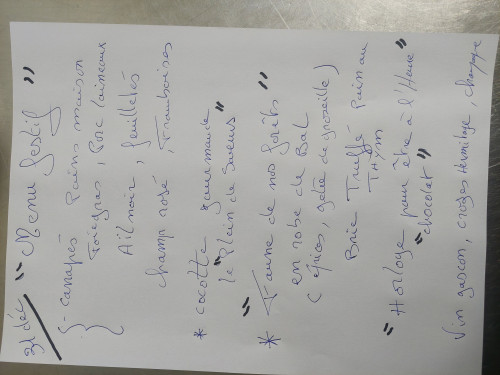 31 déc " Menu festif "
- canapés Pains maison
Foiegras, Porc laineux
Ail noir, feuilletés
champ rosé, Framboises
* cocotte gourmande
le "Plein de Saveurs"
* "Faune de nos forêts"
en robe de Bal
(épices, gelée de groseille)
Brie Truffé Pain au
THYM
"Horloge pour être à l'Heure"
"chocolat"
Vin gascon, crozes Hermitage, champagne